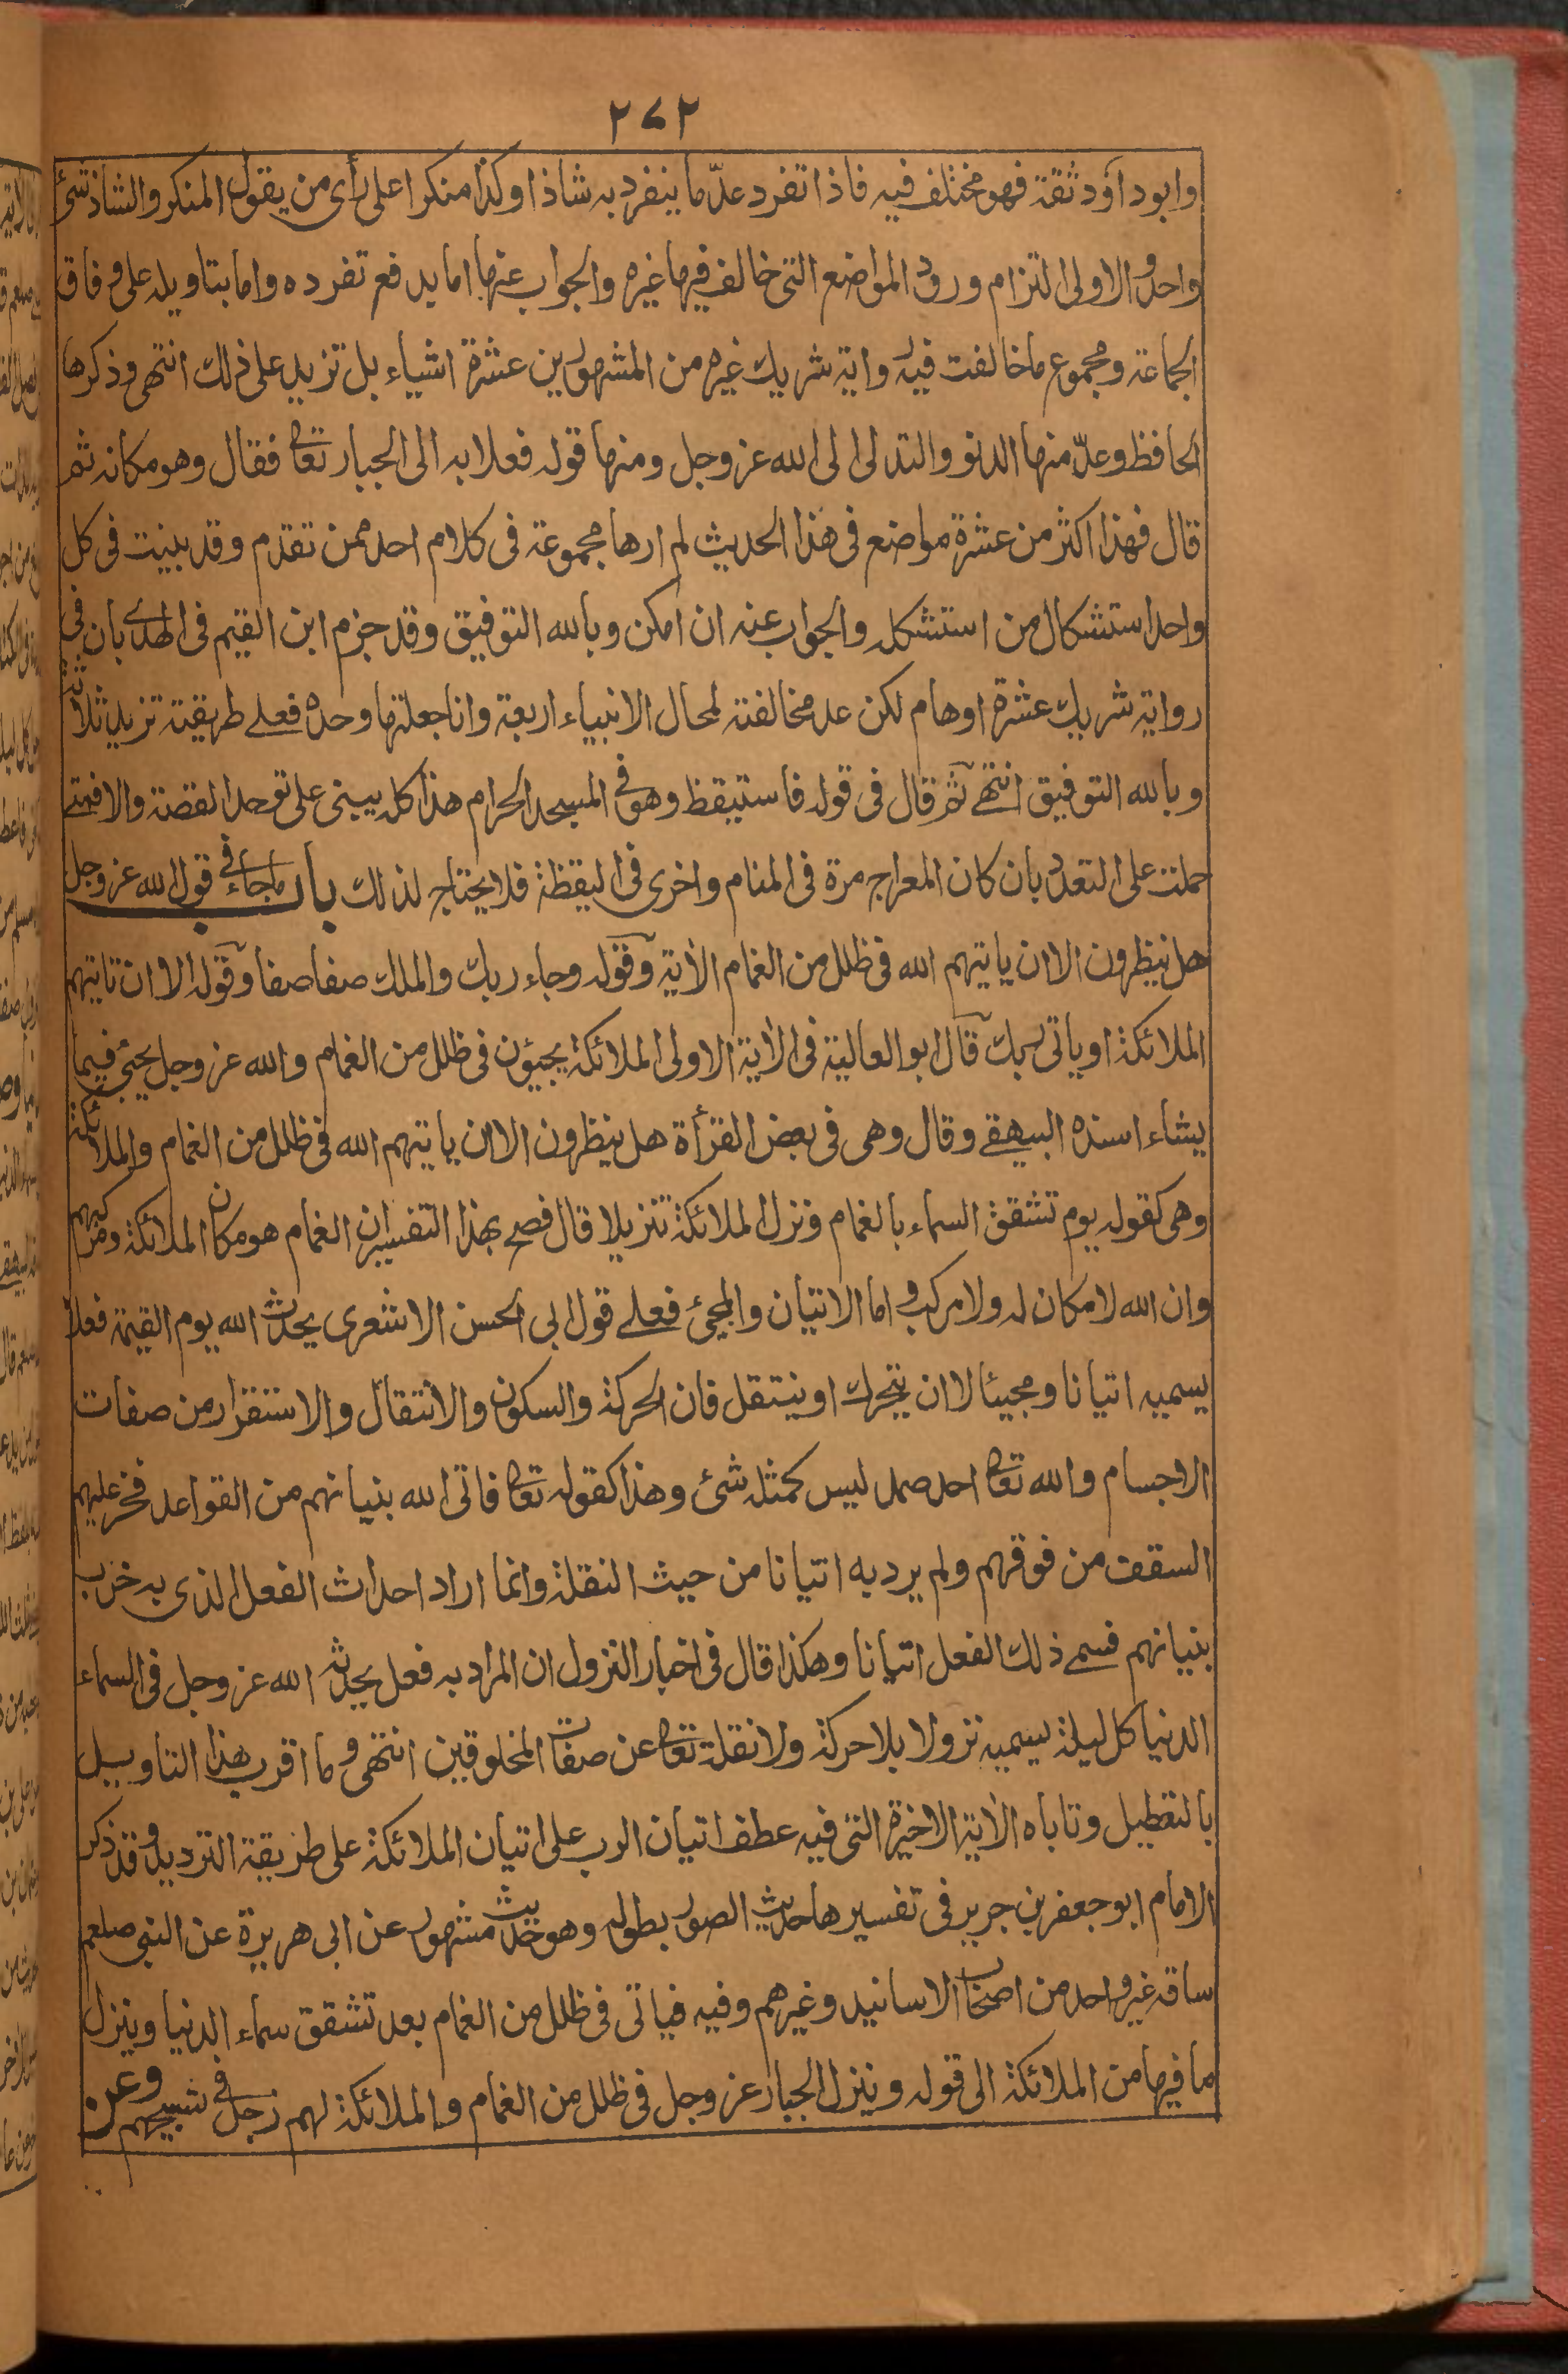 ٢٧٢
وابوداؤد ثقة فهو مختلف فيه فاذا تفرد عدّ ما ينفرد به شاذا وكذا منكرا على رأى من يقول المنكر والشاذ شئ
واحد والاولى التزام ورود المواضع التى خالف فيها غيره والجواب عنها اما يدفع تفرده واما بتاويله على وفاق
الجماعة ومجموع ما خالفت فيه رواية شريك غيره من المشهورين عشرة اشياء بل تزيد على ذلك انتهى وذكرها
الحافظ وعدّ منها الدنو والتدلى الى الله عز وجل ومنها قوله فعلا به الى الجبار تعا فقال وهو مكانه ثم
قال فهذا اكثر من عشرة مواضع فى هذا الحديث لم ارها مجموعة فى كلام احد ممن تقدم وقد بينت فى كل
واحد استشكال من استشكله والجواب عنه ان امكن وبالله التوفيق وقد جزم ابن القيم فى الهدى بان فى
رواية شريك عشرة اوهام لكن عد مخالفته لمحال الانبياء اربعة وانا جعلتها وحده فعلے طريقته تزيد ثلاثة
وبالله التوفيق انتهے ثم قال فى قوله فاستيقظ وهو فى المسجد الحرام هذا كله يبنى على توحد القصة والا فمتے
حملت على التعدد بان كان المعراج مرة فى المنام واخرى فى اليقظة فلا يحتاج لذلك باب ما جاء فى قول الله عز وجل
هل ينظرون الا ان ياتيهم الله فى ظلل من الغمام الاية وقوله وجاء ربك والملك صفا صفا وقوله الا ان تاتيهم
الملائكة او ياتى ربك قال ابو العالية فى الاية الاولى الملائكة يجيؤن فى ظلل من الغمام والله عز وجل يجئ فيما
يشاء اسنده البيهقے وقال وهى فى بعض القرأة هل ينظرون الا ان ياتيهم الله فى ظلل من الغمام والملائكة
وهى كقوله يوم تشقق السماء بالغمام ونزل الملائكة تنزيلا قال فصح بهذا التفسير ان الغمام هو مكان الملائكة ومركبهم
وان الله لا مكان له ولا مركب واما الاتيان والمجئ فعلے قول ابى الحسن الاشعرى يحدث الله يوم القيمة فعلا
يسميه اتيانا ومجيئا لا ان يتحرك او ينتقل فان الحركة والسكون والانتقال والاستقرار من صفات
الاجسام والله تعا احد صمد ليس كمثله شئ وهذا كقوله تعا فاتى الله بنيانهم من القواعد فخر عليهم
السقف من فوقهم ولم يرد به اتيانا من حيث النقلة وانما اراد احداث الفعل الذى به خرب
بنيانهم فسمے ذلك الفعل اتيانا وهكذا قال فى اخبار النزول ان المراد به فعل يحدثه الله عز وجل فى السماء
الدنيا كل ليلة يسميه نزولا بلا حركة ولا نقلة تعا عن صفات المخلوقين انتهى وما اقرب هذا التاويل
بالتعطيل وتاباه الاية الاخيرة التى فيه عطف اتيان الرب على اتيان الملائكة على طريقة الترديد وقد ذكر
الامام ابو جعفر بن جرير فى تفسيرها حديث الصور بطوله وهو حديث مشهور عن ابى هريرة عن النبى صلعم
ساقه غير واحد من اصحاب الاسانيد وغيرهم وفيه فياتى فى ظلل من الغمام بعد تشقق سماء الدنيا وينزل
ما فيها من الملائكة الى قوله وينزل الجبار عز وجل فى ظلل من الغمام والملائكة لهم زجل فى تسبيحهم وعن